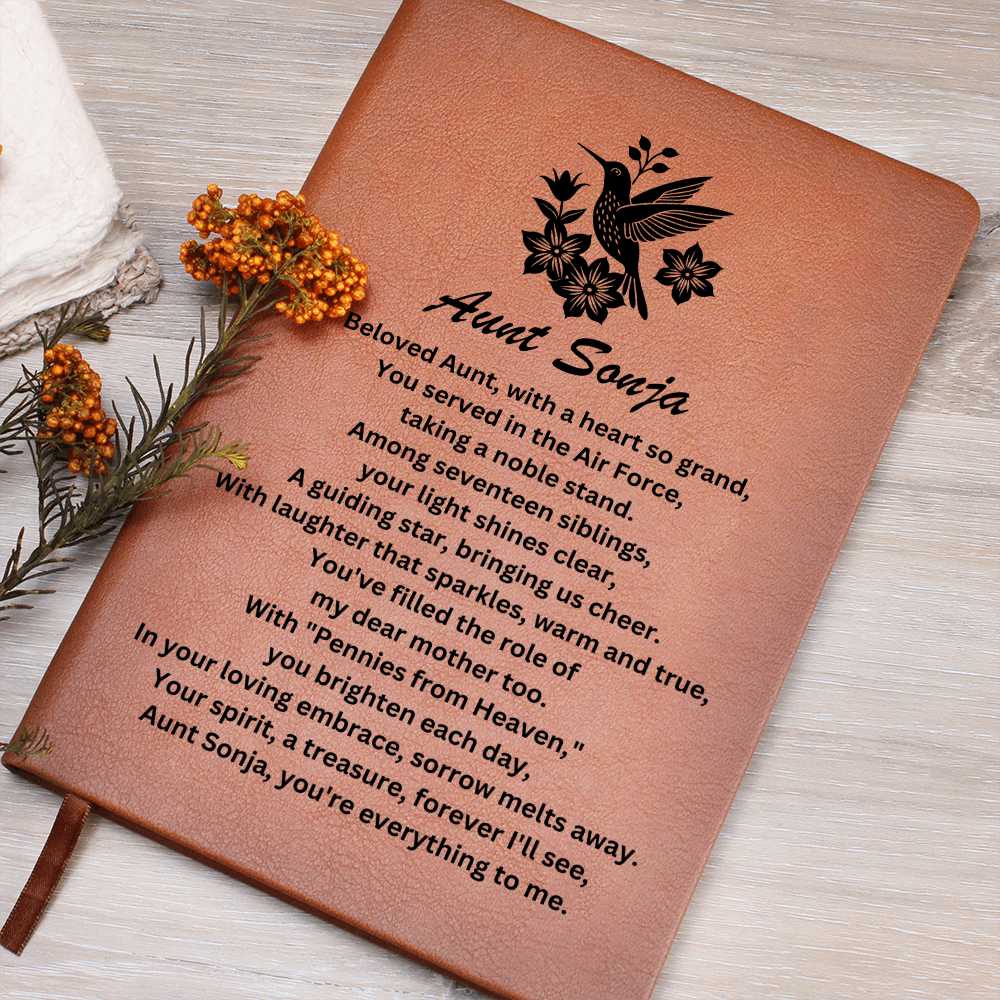 Aunt Sonja
Beloved Aunt, with a heart so grand,
You served in the Air Force,
taking a noble stand.
Among seventeen siblings,
your light shines clear,
A guiding star, bringing us cheer.
With laughter that sparkles, warm and true,
You've filled the role of
my dear mother too.
With "Pennies from Heaven,"
you brighten each day,
In your loving embrace, sorrow melts away.
Your spirit, a treasure, forever I'll see,
Aunt Sonja, you're everything to me.